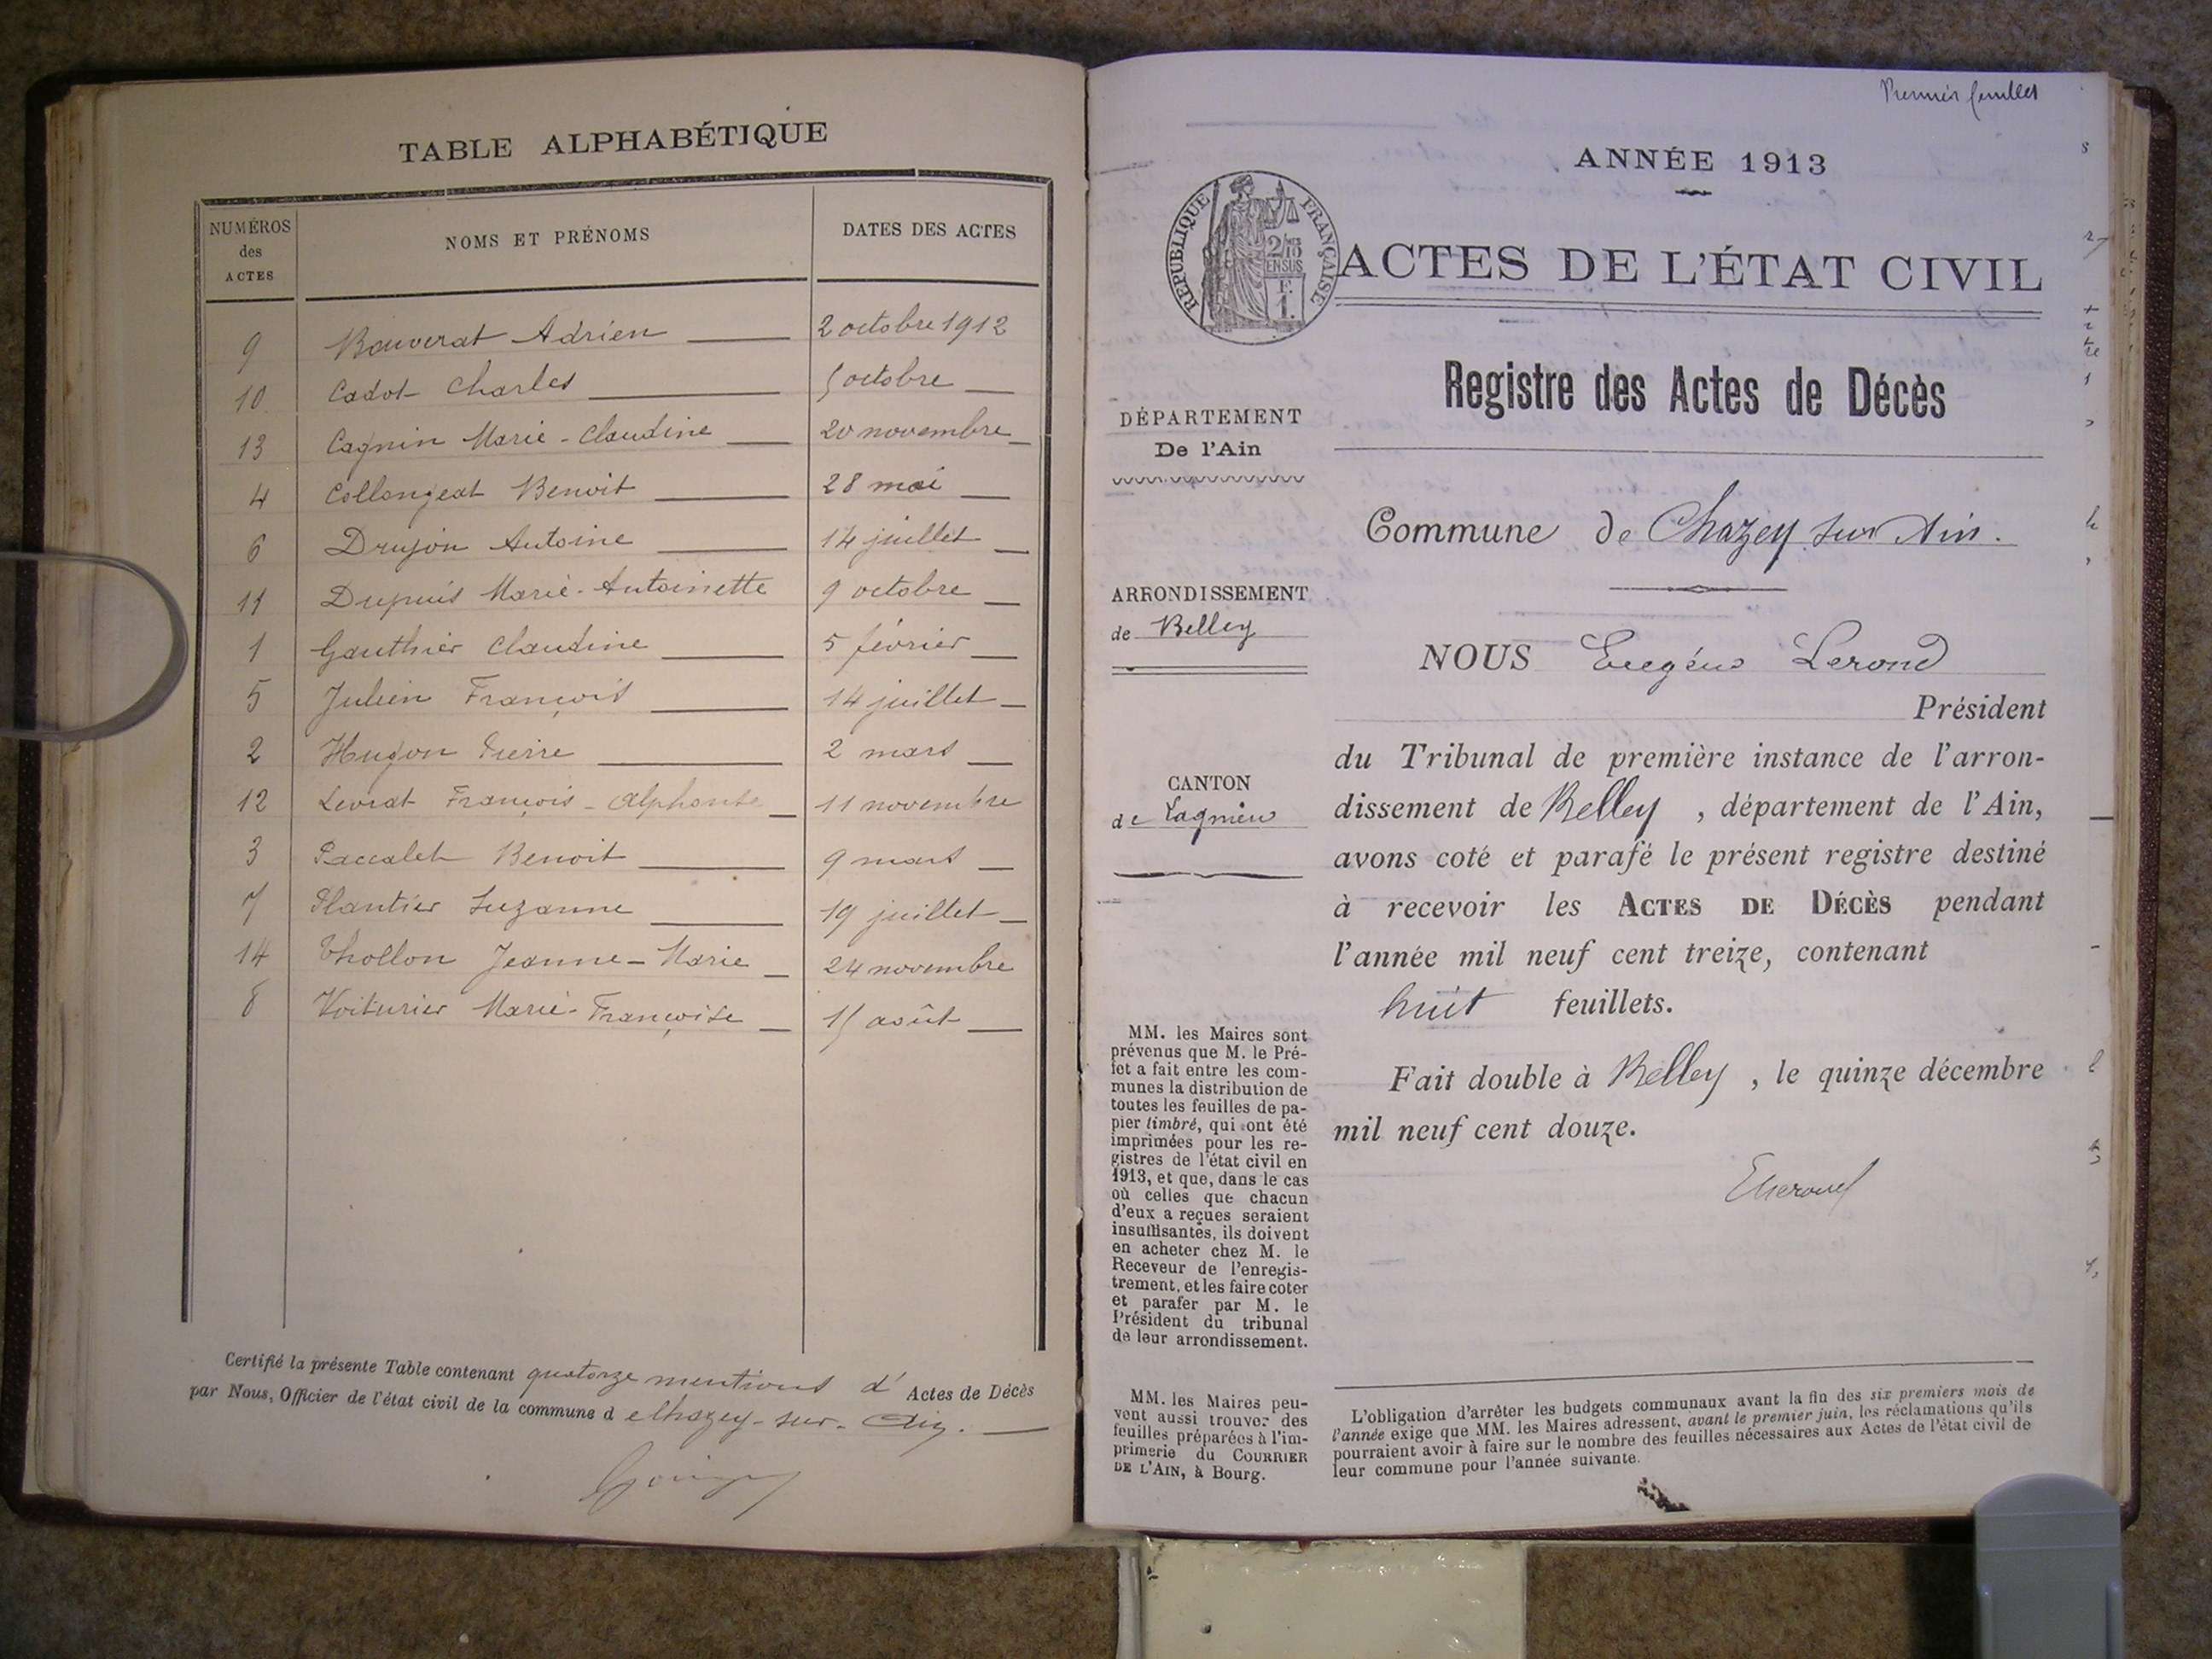 TABLE ALPHABÉTIQUE
NUMÉROS des ACTES NOMS ET PRÉNOMS DATES DES ACTES
9 Bouverat Adrien 2 octobre 1912
10 Cadot Charles 5 octobre
13 Cagnin Marie-Claudine 20 novembre
4 Collangeat Benoit 28 mai
6 Drujon Antoine 14 juillet
11 Dupuis Marie-Antoinette 9 octobre
1 Gauthier Claudine 5 février
5 Julien François 14 juillet
2 Hugon Pierre 2 mars
12 Levrat François-Alphonse 11 novembre
3 Paccalet Benoit 9 mars
7 Plantier Suzanne 19 juillet
14 Thollon Jeanne-Marie 24 novembre
8 Voiturier Marie-Françoise 15 août
Certifié la présente Table contenant quatorze mentions d' Actes de Décès
par Nous, Officier de l'état civil de la commune d e Chazey-sur-Ain.
Premier feuillet
ANNÉE 1913
RÉPUBLIQUE FRANÇAISE
ACTES DE L'ÉTAT CIVIL
Registre des Actes de Décès
DÉPARTEMENT
De l'Ain
Commune de Chazey sur Ain.
ARRONDISSEMENT
de Belley
NOUS Eugène Lerond
Président
du Tribunal de première instance de l'arron-
dissement de Belley, département de l'Ain,
avons coté et parafé le présent registre destiné
à recevoir les ACTES DE DÉCÈS pendant
l'année mil neuf cent treize, contenant
huit feuillets.
Fait double à Belley, le quinze décembre
mil neuf cent douze.
CANTON
de Lagnieu
MM. les Maires sont
prévenus que M. le Pré-
fet a fait entre les com-
munes la distribution de
toutes les feuilles de pa-
pier timbré, qui ont été
imprimées pour les re-
gistres de l'état civil en
1913, et que, dans le cas
où celles que chacun
d'eux a reçues seraient
insuffisantes, ils doivent
en acheter chez M. le
Receveur de l'enregis-
trement, et les faire coter
et parafer par M. le
Président du tribunal
de leur arrondissement.
MM. les Maires peu-
vent aussi trouver des
feuilles préparées à l'im-
primerie du COURRIER
DE L'AIN, à Bourg.
L'obligation d'arrêter les budgets communaux avant la fin des six premiers mois de
l'année exige que MM. les Maires adressent, avant le premier juin, les réclamations qu'ils
pourraient avoir à faire sur le nombre des feuilles nécessaires aux Actes de l'état civil de
leur commune pour l'année suivante.